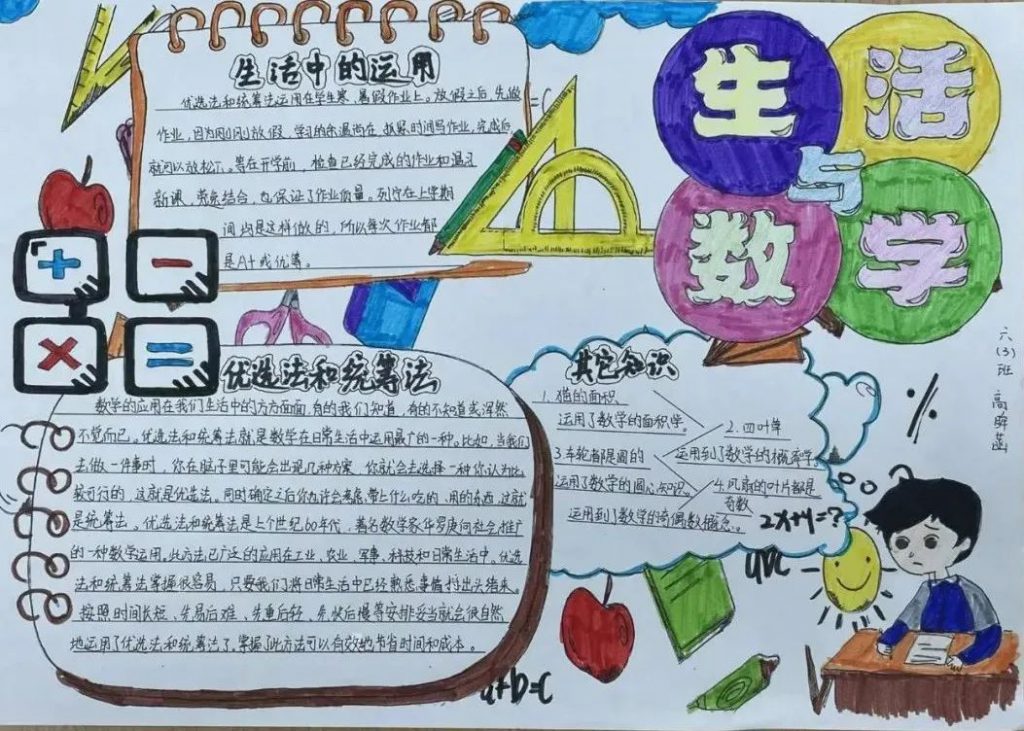 生活与数学
生活中的运用
优选法和统筹法运用在学生寒、暑假作业上。放假之后,先做
作业,因为刚刚放假,学习的余温尚在,抓紧时间写作业,完成后
就可以放松了。等在开学前,检查已经完成的作业和温习
新课,劳免结合,也保证了作业质量。列宁在上学期
间均是这样做的,所以每次作业都
是A+或优等。
+
-
×
=
优选法和统筹法
数学的应用在我们生活中的方方面面,有的我们知道,有的不知道或浑然
不觉而已。优选法和统筹法就是数学在日常生活中运用最广的一种。比如,当我们
去做一件事时,你在脑子里可能会出现几种方案,你就会去选择一种你认为比
较可行的,这就是优选法。同时确定之后你也许会考虑,带上什么吃的、用的东西,这就
是统筹法。优选法和统筹法是上个世纪60年代,著名数学家华罗庚向社会推广
的一种数学运用。此方法已广泛的应用在工业、农业、军事、科技和日常生活中。优选
法和统筹法掌握很容易,只要我们将日常生活中已经熟悉事情拎出头绪来。
按照时间长短、先易后难、先重后轻、先快后慢等安排妥当就会很自然
地运用了优选法和统筹法了。掌握了此方法可以有效地节省时间和成本。
其它知识
1.猫的面积
运用了数学的面积学。
2.四叶草
运用到了数学的概率学。
3.车轮都是圆的
运用了数学的圆心知识。
4.风扇的叶片都是
奇数
运用到了数学的奇偶数概念。
2x+y=?
a+b=c
六(3)班